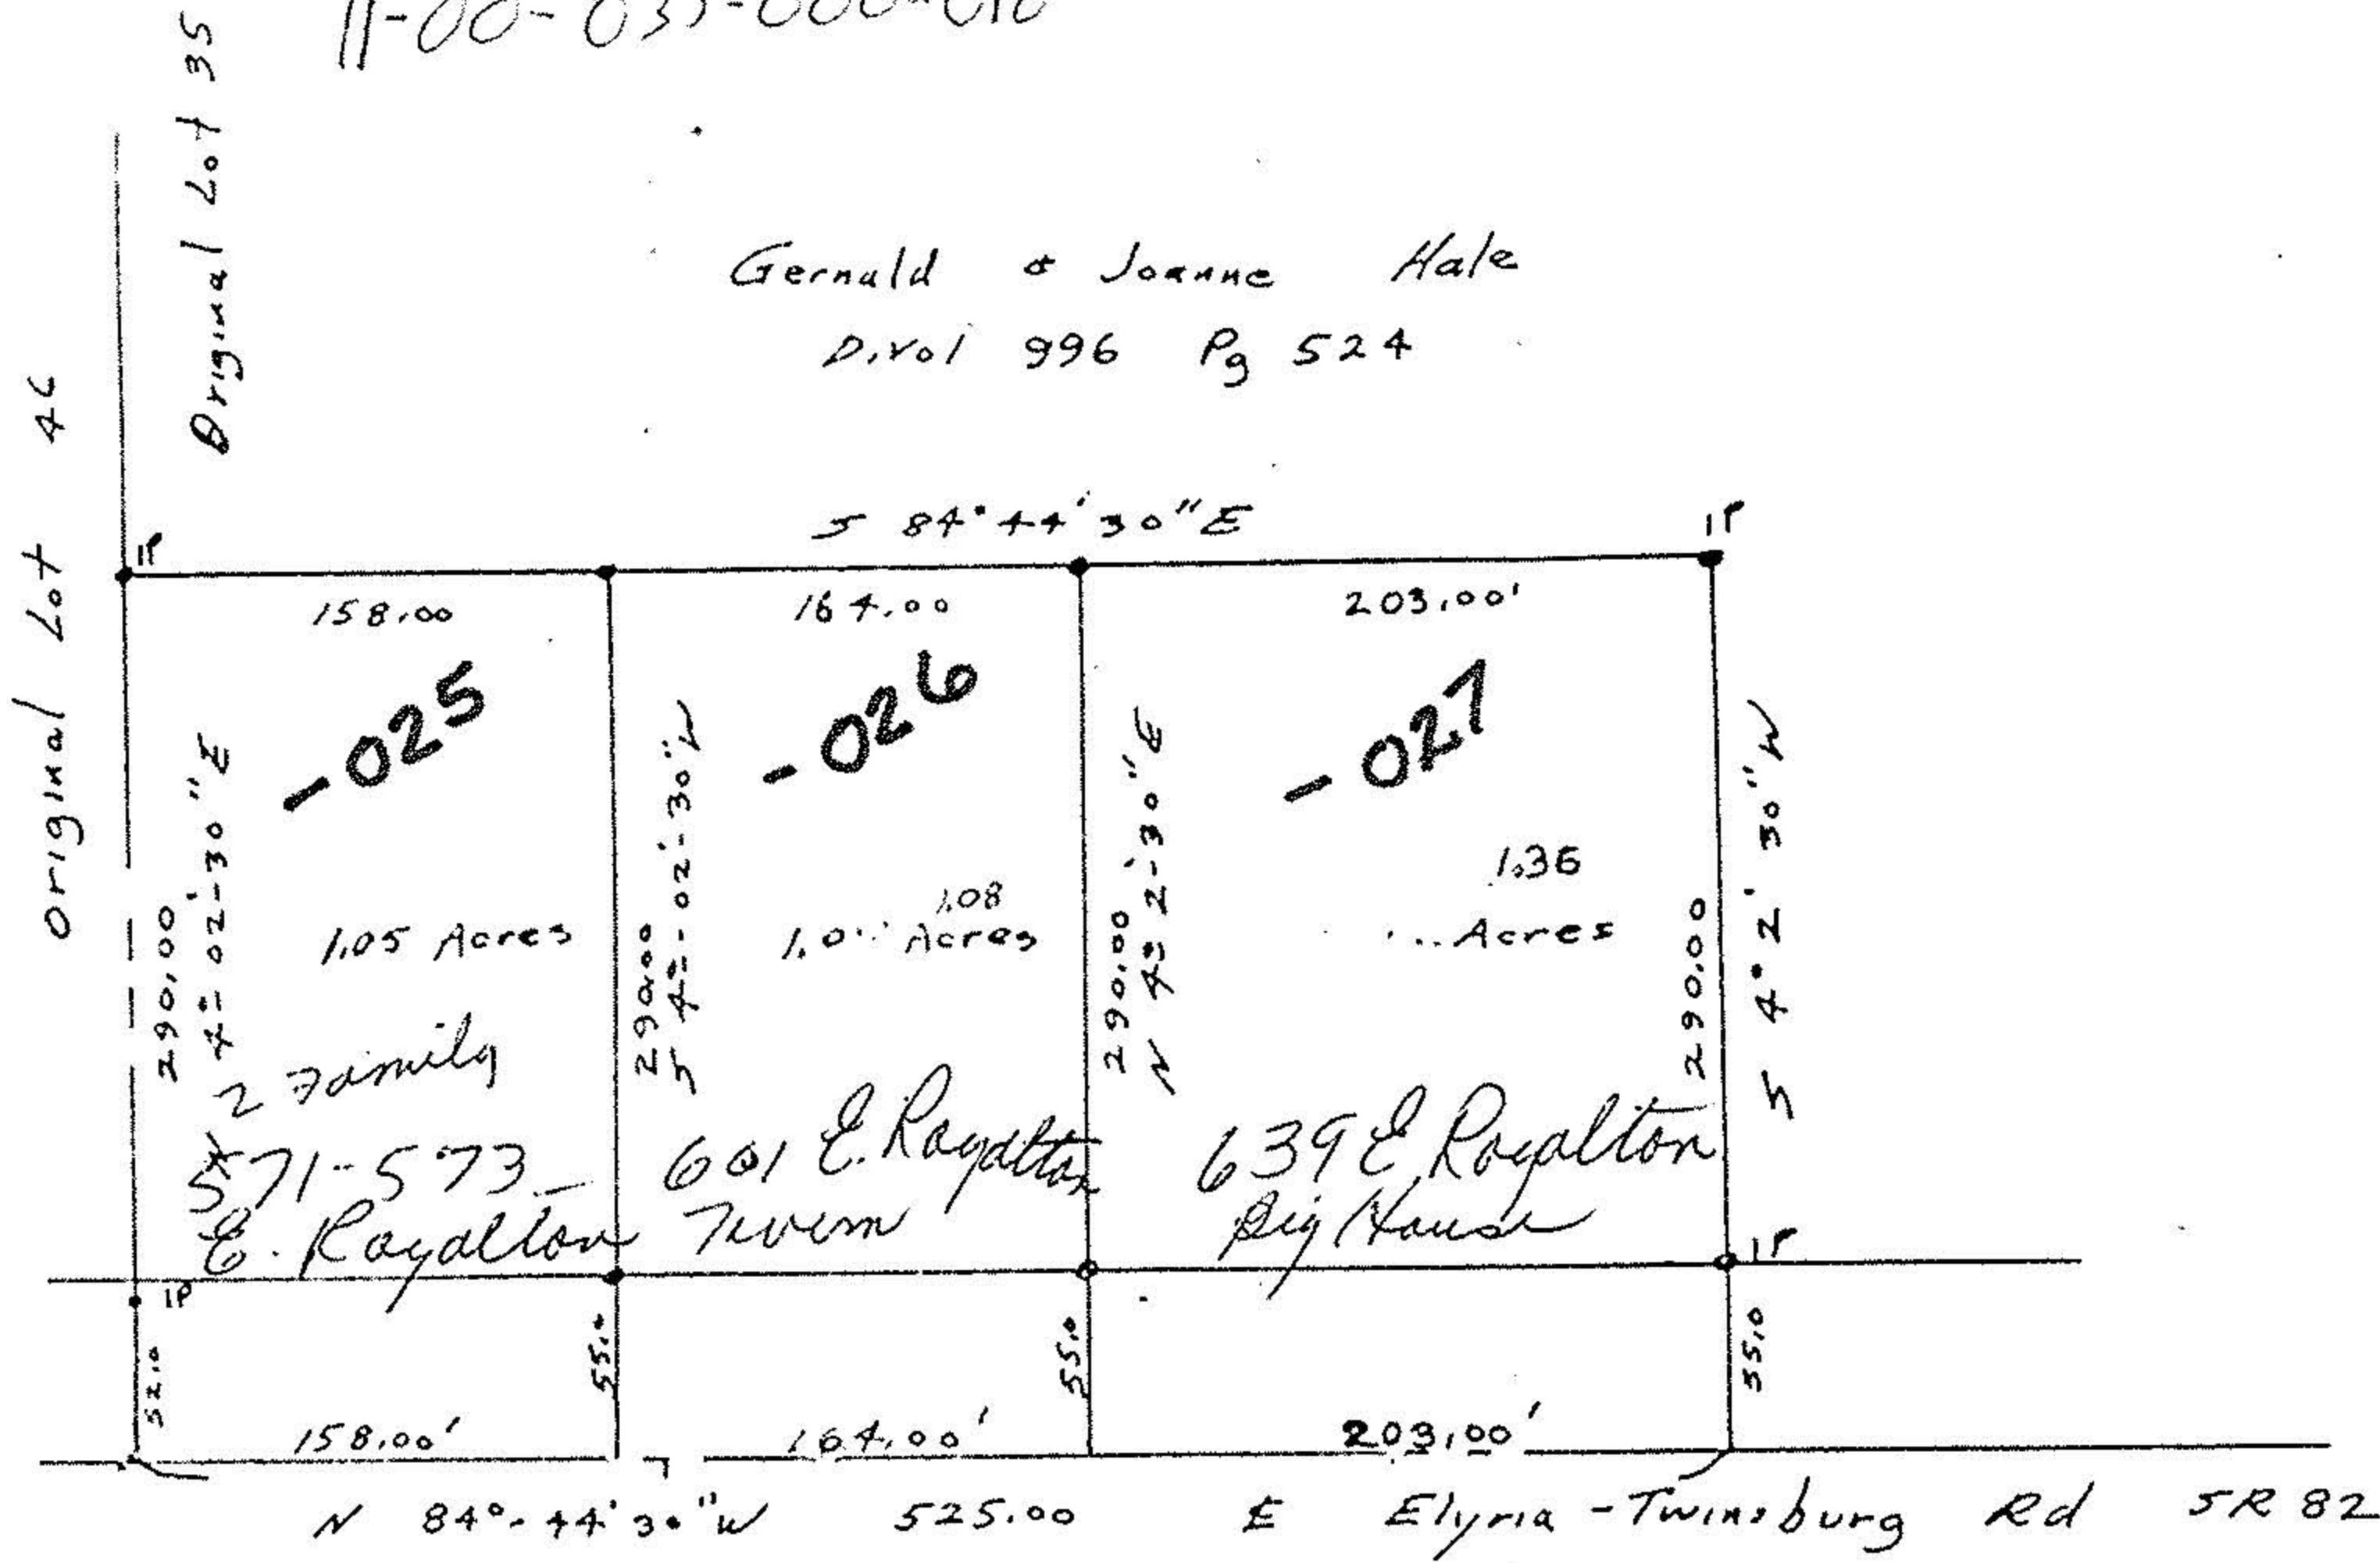 Original Lot 35
Gernald & Joanne Hale
D.Vol 996 Pg 524
Original Lot 46
S 84° 44' 30" E
IP
IP
158.00
164.00
203.00'
-025
-026
-027
290.00
4°-02'-30" E
290.00
S 4°-02'-30" W
290.00
N 4° 2'-30" E
290.00
S 4° 2' 30" W
1.05 Acres
1.08
Acres
1.36
Acres
2 Family
571-573
E. Royalton
601 E. Royalton
639 E Royalton
Big House
IP
IP
52.0
55.0
55.0
55.0
158.00'
164.00'
203.00'
N 84°-44' 30" W 525.00 Elyria-Twinsburg Rd SR 82